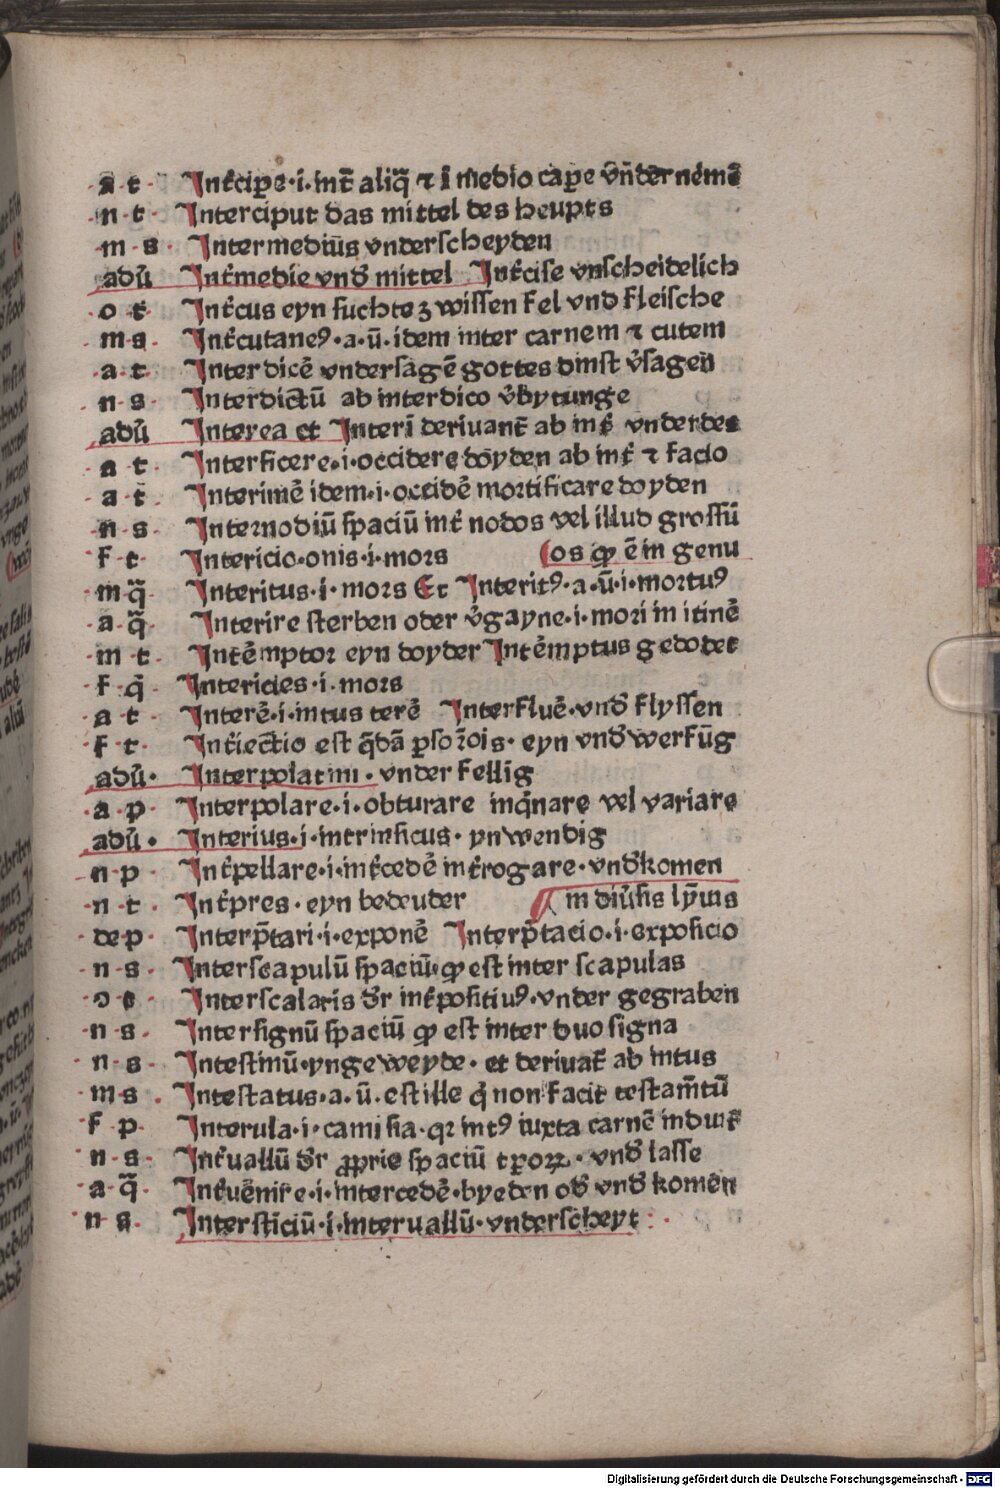 a t Int̄cipe·i·int̄ aliq̃ ⁊ ī medio cape vñder nemē
n t Interciput das mittel des heupts
m s Intermediūs vnderscheyden
adū Int̄medie vnd̄ mittel Int̄cise vnscheidelich
o t Int̄cus eyn suchte ʒwissen fel vnd fleische
m s Int̄cutaneꝰ·a·ū·idem inter carnem ⁊ cutem
a t Interdicē vndersagē gottes dinst v̄sagen
n s Interdictū ab interdico v̄bytunge
adū Interea et Interī deriuant̄ ab int̄ vnderdes
a t Interficere·i·occidere doyden ab int̄ ⁊ facio
a t Interimē idem·i·occidē mortificare doyden
n s Internodiū spaciū int̄ nodos vel illud grossū
f t Intericio·onis·i·mors (os ꝙ ē in genu
m q̃ Interitus·i·mors Et Interitꝰ·a·ū·i·mortuꝰ
a q̃ Interire sterben oder v̄gayne·i·mori in itinē
m t Intēmptor eyn doyder Intēmptus gedodet
f q̄ Intericies·i·mors
a t Interē·i·intus terē Interfluē·vnd̄ flyssen
f t Int̄iectio est q̄dā ꝑso r̄ois· eyn vnd̄werfūg
adū· Interpolatim·vnder fellig
a p Interpolare·i·obturare inq̄nare vel variare
adū· Interius·i·intrinsicus·ynwendig
n p Int̄pellare·i·int̄cedē int̄rogare·vnd̄komen
n t Int̄pres·eyn bedeuder ( in diu̅sis ly̅uis
de p Interp̄tari·i·exponē Interp̄tacio·i·exposicio
n s Interscapulū spaciū·ꝙ est inter scapulas
o t Interscalaris dr̄ int̄positiuꝰ·vnder gegraben
n s Intersignū spaciū ꝙ est inter duo signa
n s Intestinū·yngeweyde·et deriuat̄ ab intus
m s Intestatus·a·ū·est ille q̄ non facit testam̄tū
f p Interula·i·camisia·qꝛ intꝰ iuxta carnē induit̄
n s Int̄uallū dr̄ ꝓprie spaciū tꝑoꝝ·vnd̄ lasse
a q̃ Int̄uēnire·i·intercedē·byeden od̄ vnd̄ komen
n s Intersticiū·i·interuallū·vnderscheyt
Digitalisierung gefördert durch die Deutsche Forschungsgemeinschaft · DFG